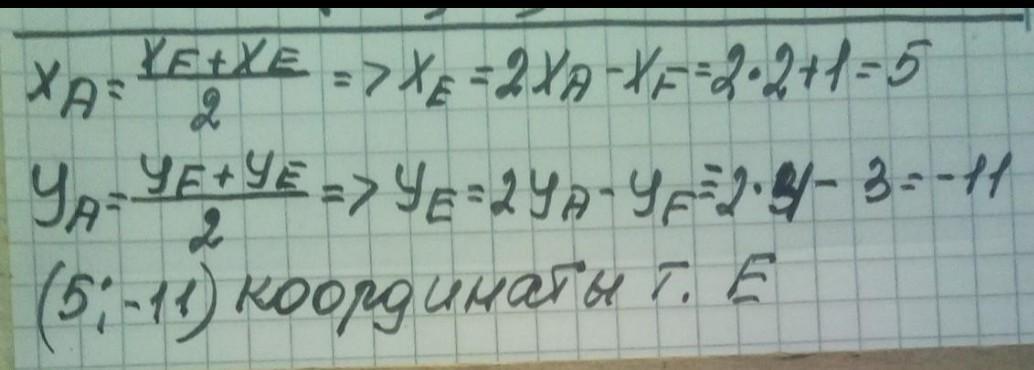 x_A = (x_E + x_E)/2 => x_E = 2x_A - x_F = 2·2+1 = 5
y_A = (y_E + y_E)/2 => y_E = 2y_A - y_F = 2· - 3 = -11
(5; -11) координаты т. E